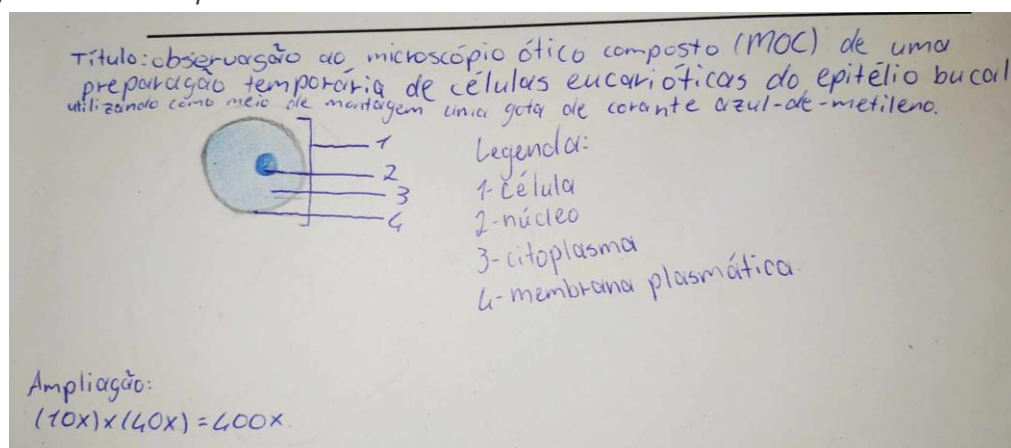 Título: observação ao microscópio ótico composto (MOC) de uma
preparação temporária de células eucarióticas do epitélio bucal
utilizando como meio de montagem uma gota de corante azul-de-metileno.
1
2
3
4
Legenda:
1-célula
2-núcleo
3-citoplasma
4-membrana plasmática.
Ampliação:
(10x)x(40x)=400x.